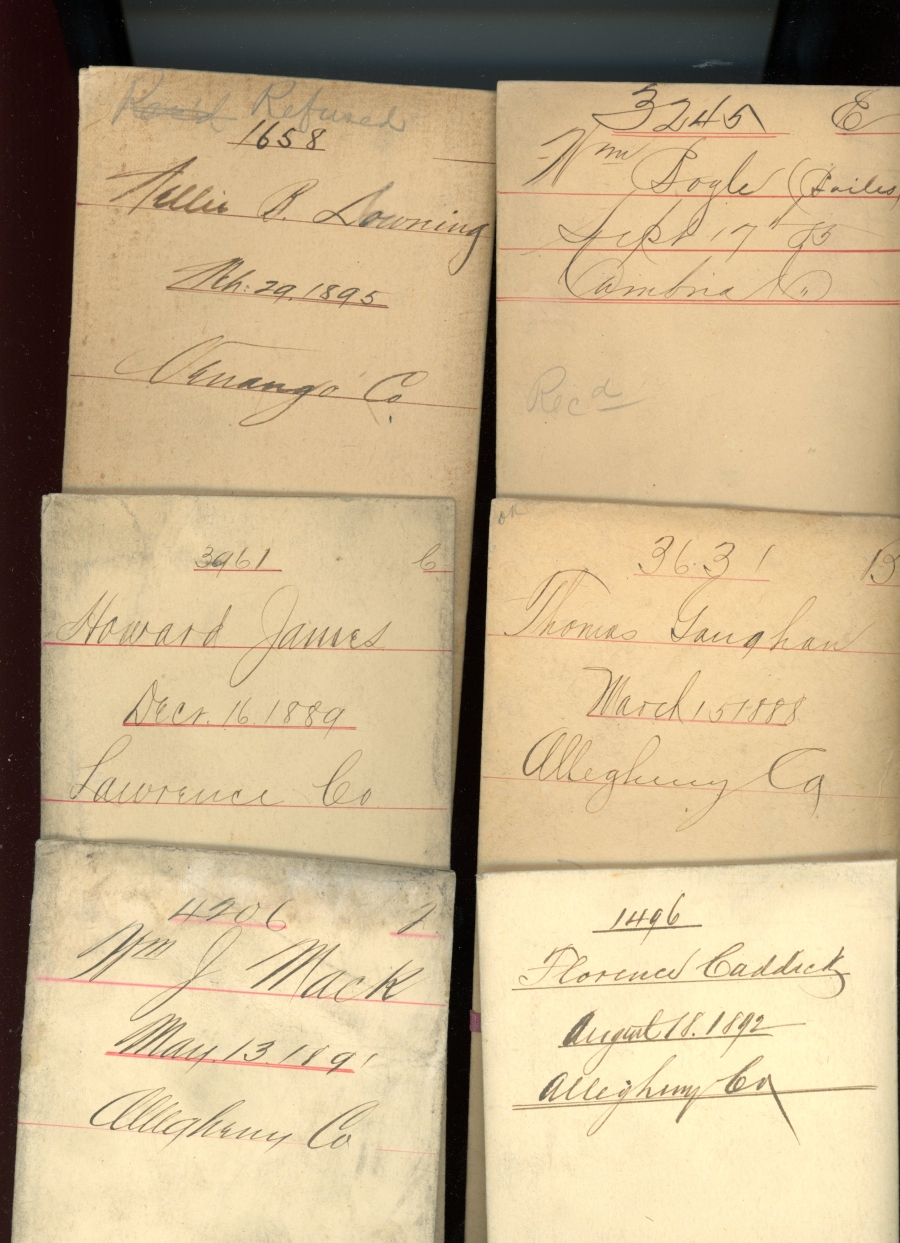 Rec'd Refused
1658
Nellie B. Downing
Mch. 29. 1895
Venango Co
3245 E
Wm Boyle (Failes)
Sept 17" 85
Cambria Co
Rec'd
3961 C
Howard James
Decr. 16. 1889
Lawrence Co
OK
3631 B
Thomas Gaughan
March 15 1888
Allegheny Co
4206 2
Wm J Mack
May. 13. 1891
Allegheny Co
1496
Florence Caddick
August 18. 1892
Allegheny Co